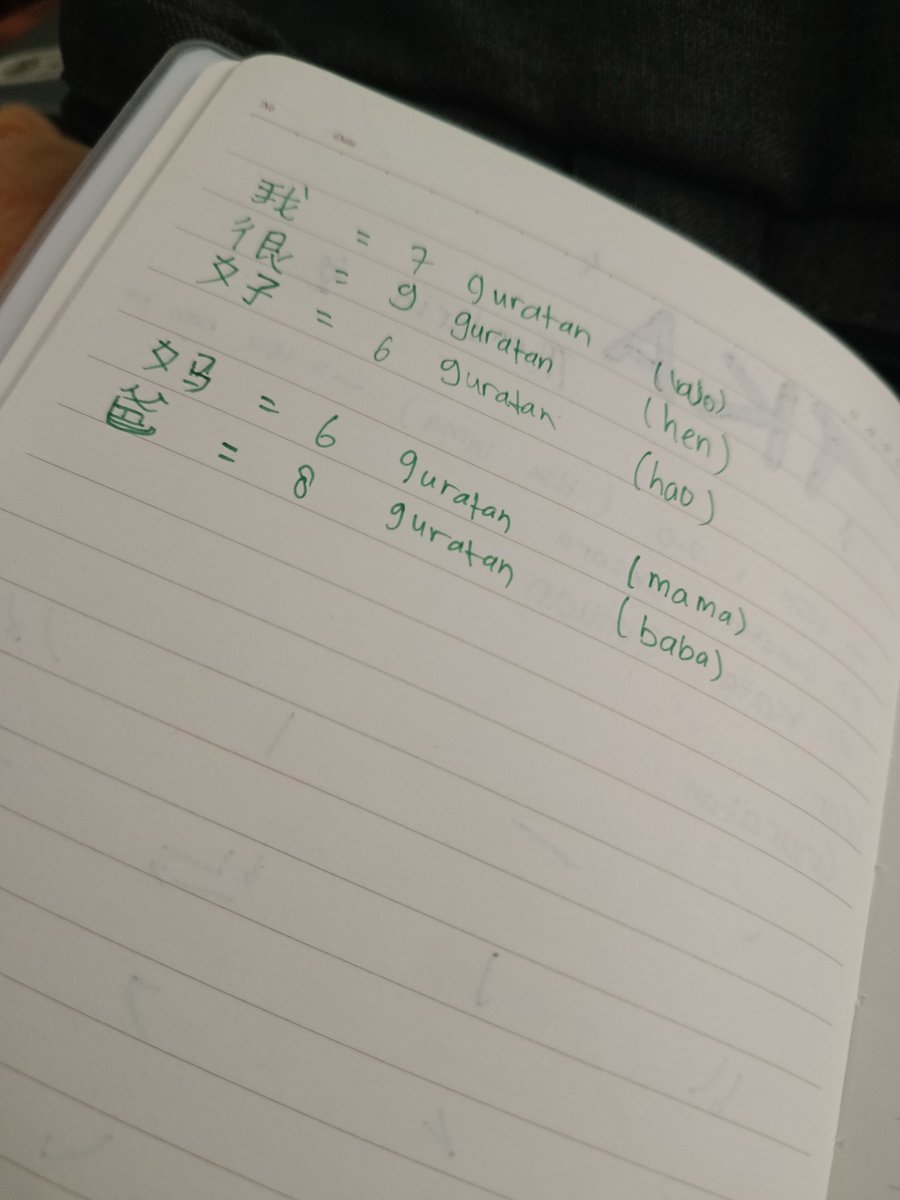 No
Date
我 = 7 guratan (wo)
很 = 9 guratan (hen)
好 = 6 guratan (hao)
妈 = 6 guratan (mama)
爸 = 8 guratan (baba)